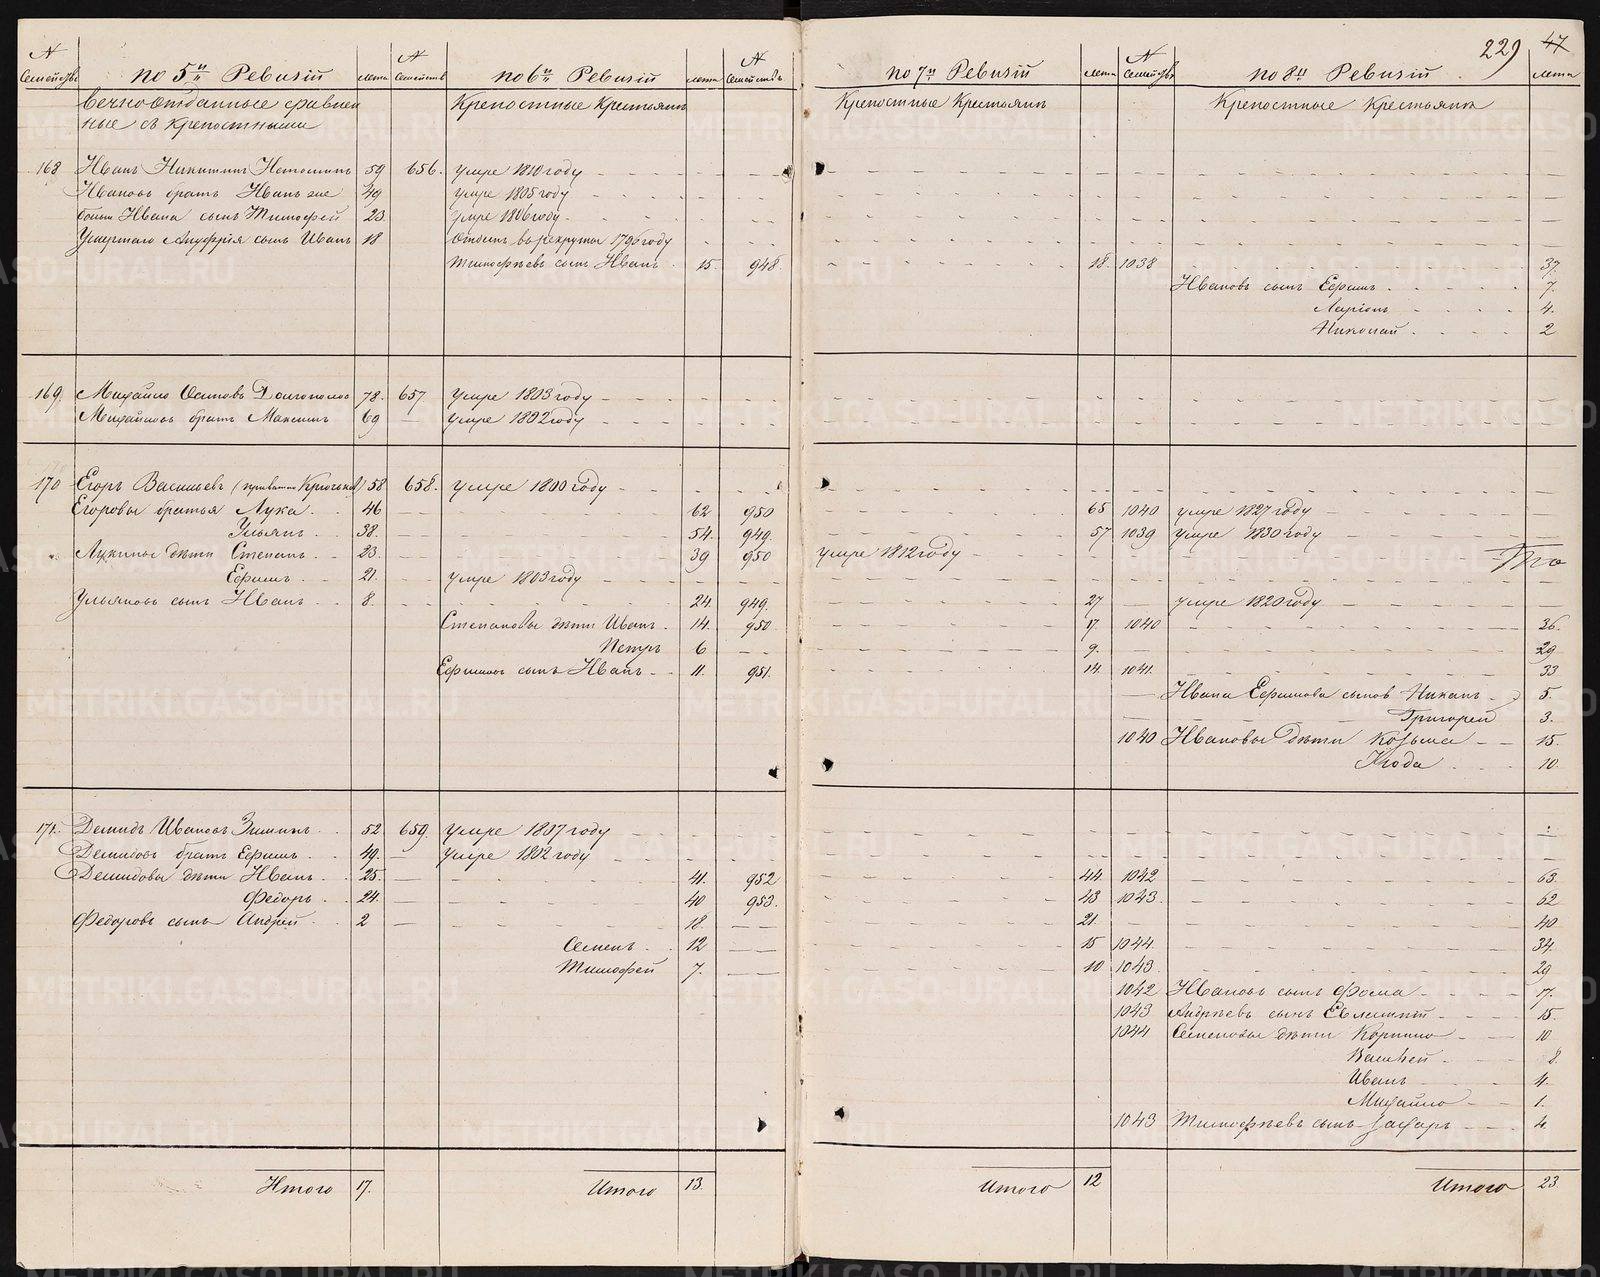 229 47
№ Семействъ по 5й Ревизіи лета № Семействъ по 6й Ревизіи лета № Семействъ по 7й Ревизіи лета № Семействъ по 8й Ревизіи лета
вечноотданные сравнен Крепостные Крестьянъ Крепостные Крестьянъ Крепостные Крестьянъ
ные съ крепостными
168 Иванъ Никитинъ 59 656. умре 1810 году
Ивановъ братъ Иванъ же 49 умре 1805 году
больш Ивана сынъ Тимофей 23 умре 1806 году
Умершаго Ануфрія сынъ Иванъ 18 Отданъ въ рекруты 1796 году
Тимофеевъ сынъ Иванъ 15. 948. 18. 1038 37.
Ивановъ сынъ Ефимъ 7.
Ларіонъ 4.
Николай 2
169. Михайло Осиповъ Долгополов 78. 657. умре 1803 году
Михайловъ братъ Максимъ 69 умре 1802 году
170 Егоръ Васильевъ ( Крючьков) 58 658. умре 1800 году
Егоровы братья Лука 46 62 950 65 1040 умре 1827 году
Ульянъ 38. 54. 949. 57 1039 умре 1830 году
Лукины дети Степанъ 23. 39 950 умре 1812 году
Ефимъ 21. умре 1803 году
Ульяновъ сынъ Иванъ 8. 24. 949. 27 умре 1820 году
Степановы дети Иванъ 14. 950. 17 1040 36.
Петръ 6 9. 29
Ефимовъ сынъ Иванъ 11. 951. 14. 1041. 33
Ивана Ефимова сынов 5.
Григорей 3.
1040 Ивановы дети Козьма 15.
10.
171. Демидъ Ивановъ Зиминъ 52. 659. умре 1807 году
Демидовъ братъ Ефимъ 49. умре 1802 году
Демидовы дети Иванъ 25. 41. 952 44. 1042 63.
Федоръ 24. 40 953. 43 1043. 62
Федоровъ сынъ Андрей 2 18. 21 40
Семенъ 12 15 1044. 34.
Тимофей 7. 10 1043. 29
1042 Ивановъ сынъ Фома 17.
1043 Андреевъ сынъ Евлампій 15.
1044 Семеновы дети Корнило 10
Василей 8.
Иванъ 4.
Михайло 1.
1043 Тимофеевъ сынъ Захаръ 4.
Итого 17. Итого 13. Итого 12 Итого 23
METRIKI.GASO-URAL.RU